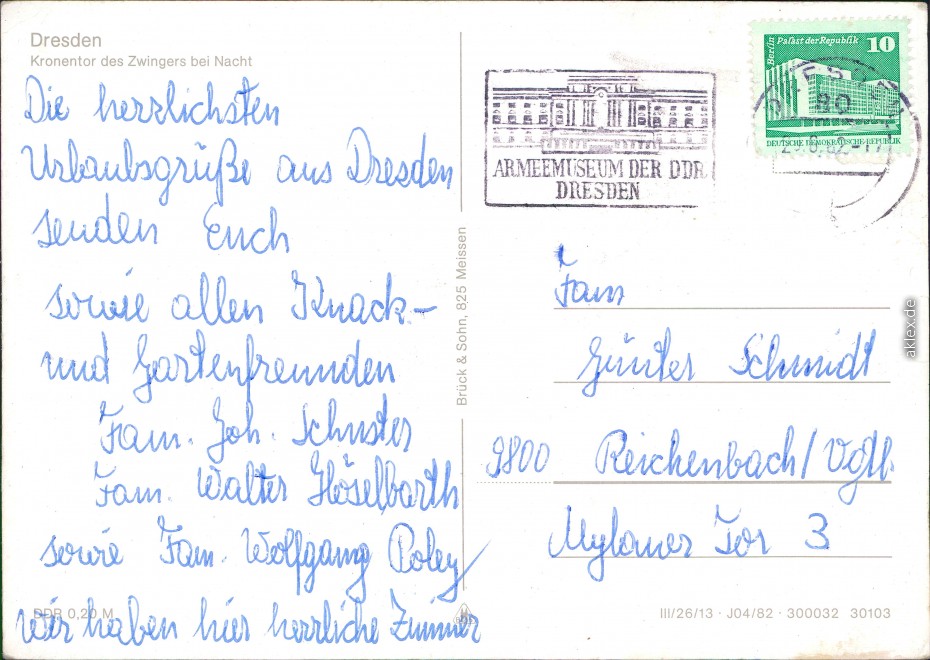 Dresden
Kronentor des Zwingers bei Nacht
Die herzlichsten
Urlaubsgrüße aus Dresden
senden Euch
sowie allen Knack-
und Gartenfreunden
Fam. Joh. Schuster
Fam. Walter Höselbarth
sowie Fam. Wolfgang Poley
wir haben hier herrliche Zimmer
DDR 0,20 M
Brück & Sohn, 825 Meissen
ARMEEMUSEUM DER DDR
DRESDEN
Berlin Palast der Republik 10
DEUTSCHE DEMOKRATISCHE REPUBLIK
80
Fam
Günter Schmidt
9800 Reichenbach/Vgtl.
Mylauer Tor 3
III/26/13 · J04/82 · 300032 30103
aklex.de